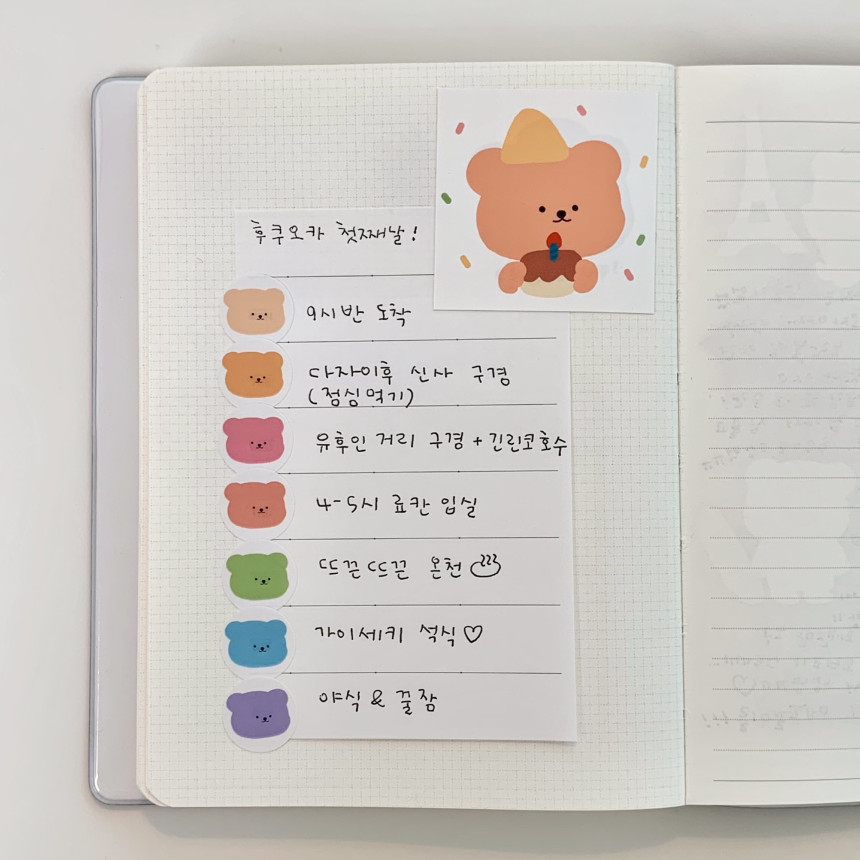 후쿠오카 첫째날!
9시반 도착
다자이후 신사 구경
(점심먹기)
유후인 거리 구경 + 긴린코호수
4-5시 료칸 입실
뜨끈뜨끈 온천
가이세키 석식♡
야식 & 꿀잠